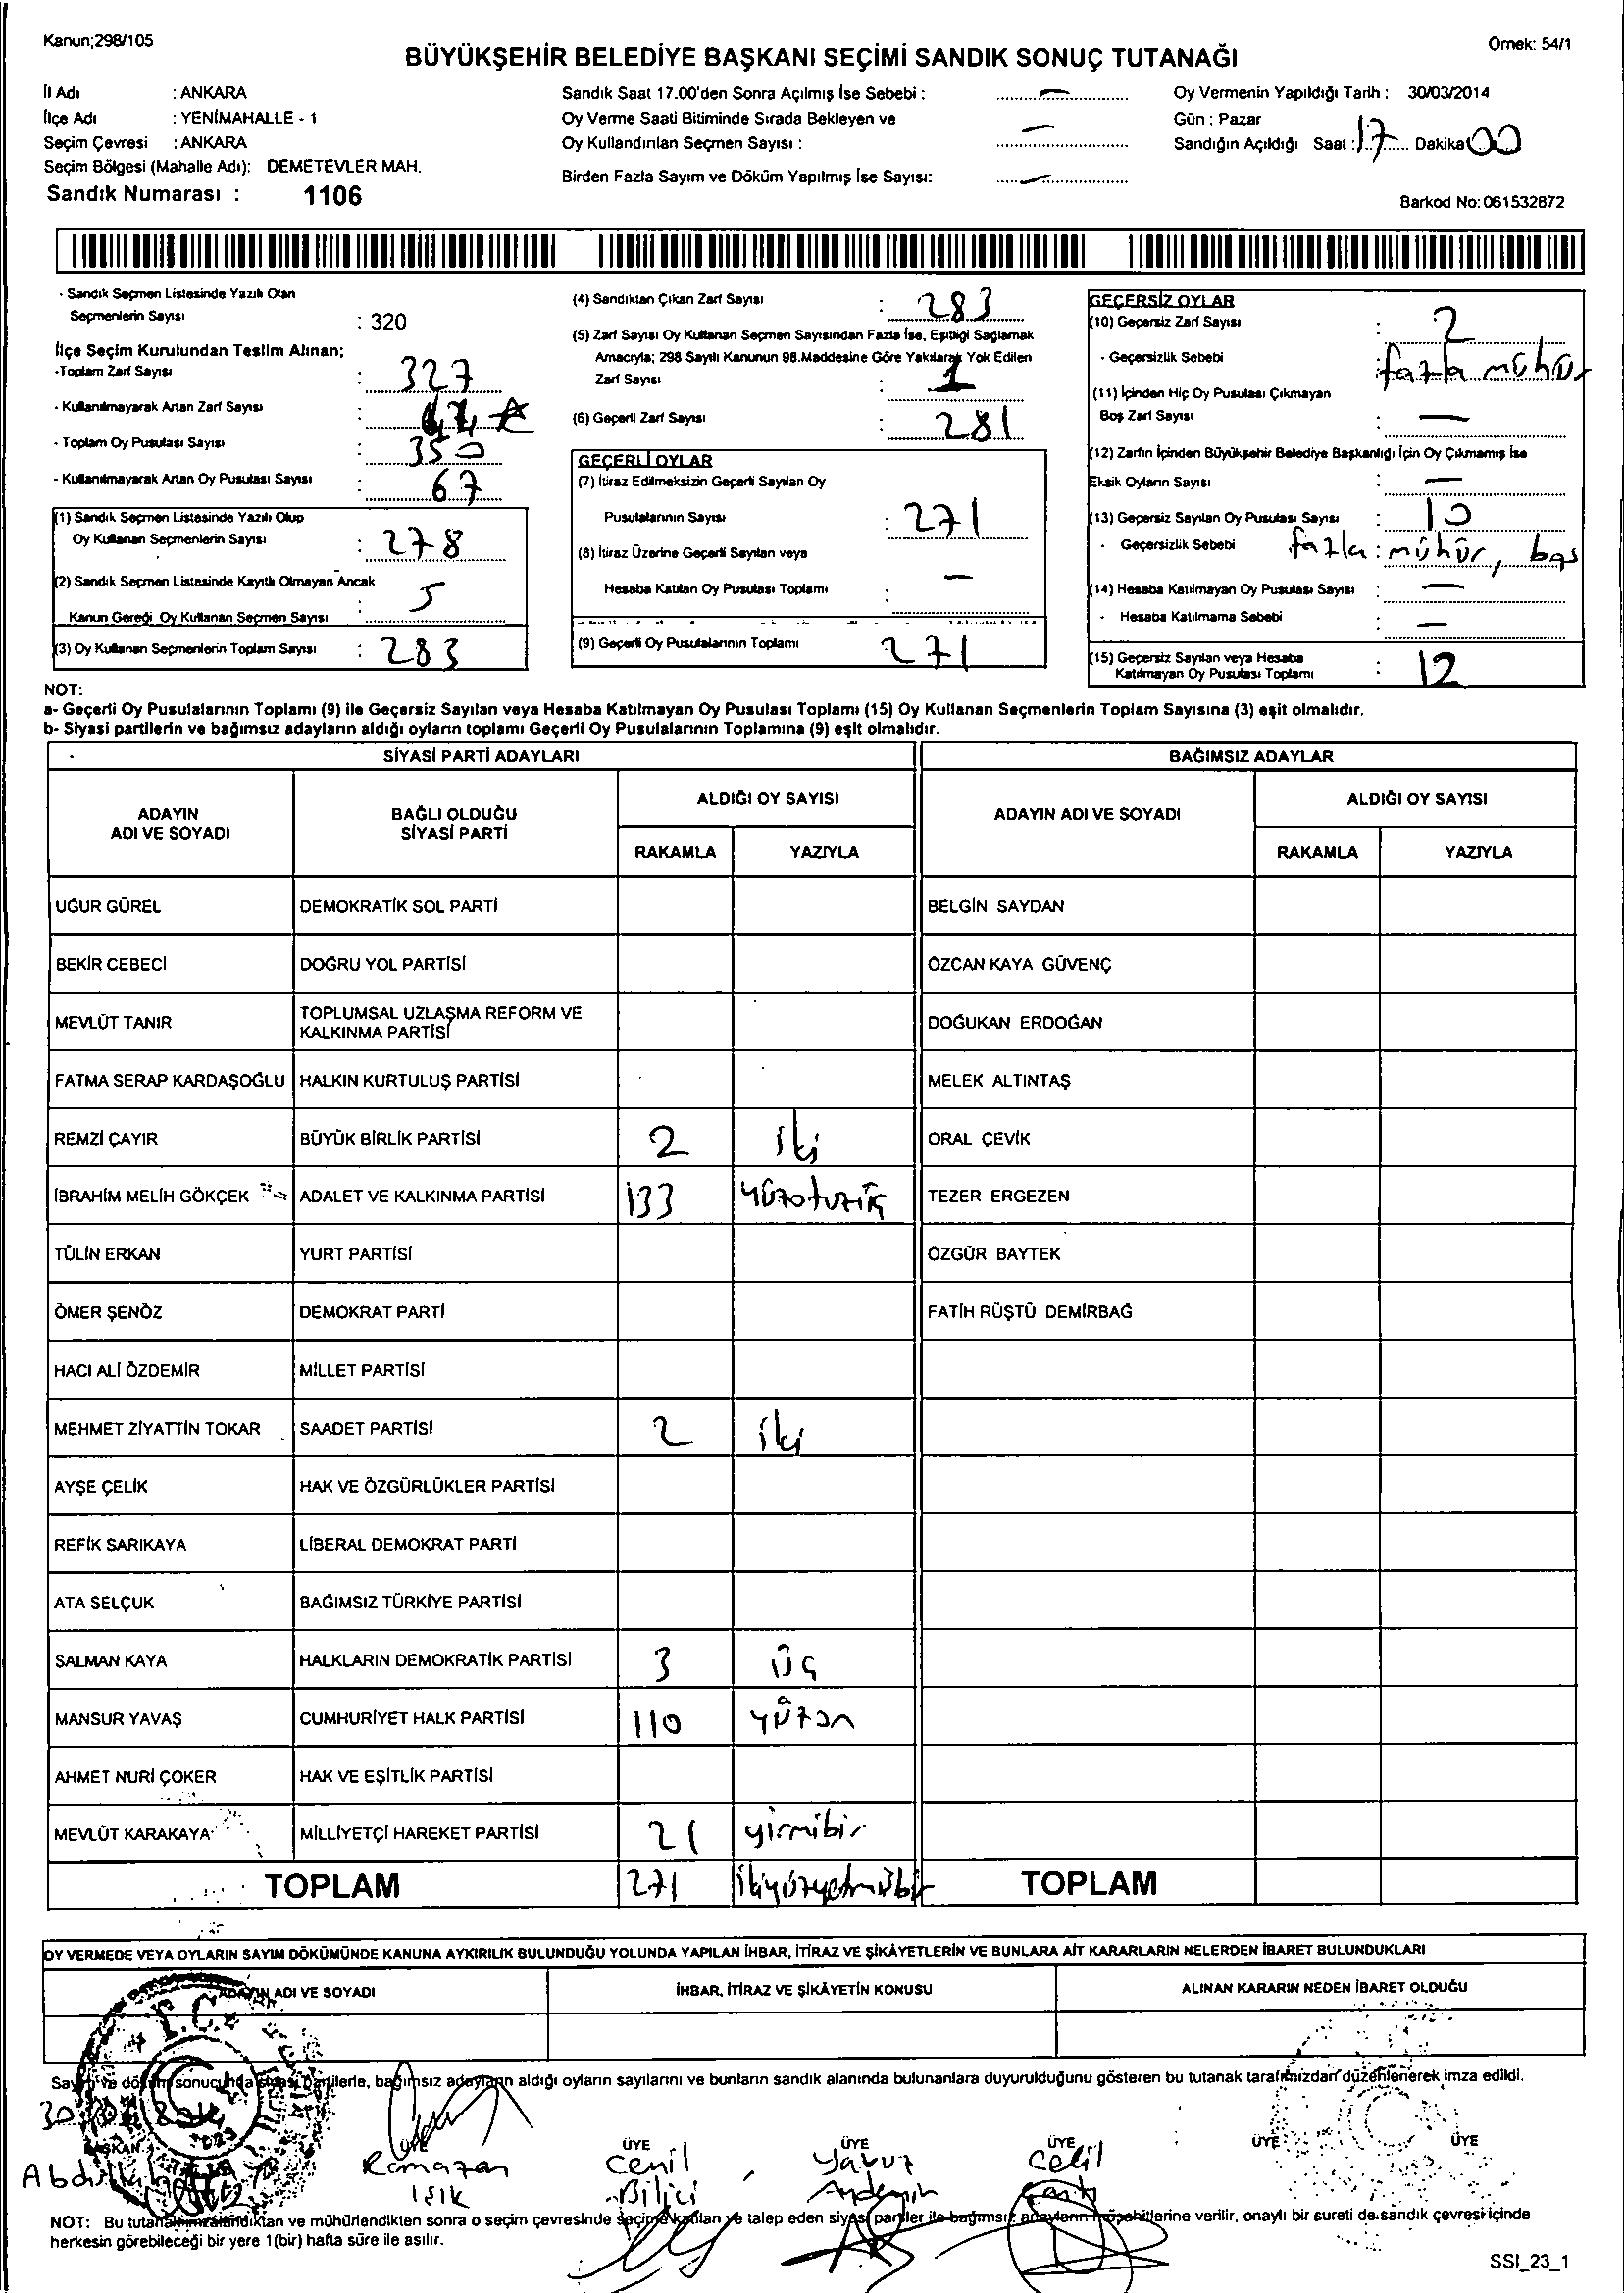 Kanun;298/105
Örnek: 54/1
BÜYÜKŞEHİR BELEDİYE BAŞKANI SEÇİMİ SANDIK SONUÇ TUTANAĞI
İl Adı : ANKARA
İlçe Adı : YENİMAHALLE - 1
Seçim Çevresi : ANKARA
Seçim Bölgesi (Mahalle Adı): DEMETEVLER MAH.
Sandık Numarası : 1106
Sandık Saat 17.00'den Sonra Açılmış İse Sebebi : —
Oy Verme Saati Bitiminde Sırada Bekleyen ve
Oy Kullandırılan Seçmen Sayısı : —
Birden Fazla Sayım ve Döküm Yapılmış İse Sayısı: —
Oy Vermenin Yapıldığı Tarih : 30/03/2014
Gün : Pazar
Sandığın Açıldığı Saat : 17 Dakika 00
Barkod No: 061532872
- Sandık Seçmen Listesinde Yazılı Olan
Seçmenlerin Sayısı : 320
İlçe Seçim Kurulundan Teslim Alınan;
-Toplam Zarf Sayısı : 327
- Kullanılmayarak Artan Zarf Sayısı :
- Toplam Oy Pusulası Sayısı : 350
- Kullanılmayarak Artan Oy Pusulası Sayısı : 67
(1) Sandık Seçmen Listesinde Yazılı Olup
Oy Kullanan Seçmenlerin Sayısı : 278
(2) Sandık Seçmen Listesinde Kayıtlı Olmayan Ancak
Kanun Gereği Oy Kullanan Seçmen Sayısı : 5
(3) Oy Kullanan Seçmenlerin Toplam Sayısı : 283
(4) Sandıktan Çıkan Zarf Sayısı : 283
(5) Zarf Sayısı Oy Kullanan Seçmen Sayısından Fazla İse, Eşitliği Sağlamak
Amacıyla; 298 Sayılı Kanunun 98.Maddesine Göre Yakılarak Yok Edilen
Zarf Sayısı : 1
(6) Geçerli Zarf Sayısı : 281
GEÇERLİ OYLAR
(7) İtiraz Edilmeksizin Geçerli Sayılan Oy
Pusulalarının Sayısı : 271
(8) İtiraz Üzerine Geçerli Sayılan veya
Hesaba Katılan Oy Pusulası Toplamı : —
(9) Geçerli Oy Pusulalarının Toplamı 271
GEÇERSİZ OYLAR
(10) Geçersiz Zarf Sayısı : 2
- Geçersizlik Sebebi : fazla mühür
(11) İçinden Hiç Oy Pusulası Çıkmayan
Boş Zarf Sayısı : —
(12) Zarfın İçinden Büyükşehir Belediye Başkanlığı İçin Oy Çıkmamış İse
Eksik Oyların Sayısı : —
(13) Geçersiz Sayılan Oy Pusulası Sayısı : 10
- Geçersizlik Sebebi : fazla mühür, boş
(14) Hesaba Katılmayan Oy Pusulası Sayısı : —
- Hesaba Katılmama Sebebi : —
(15) Geçersiz Sayılan veya Hesaba
Katılmayan Oy Pusulası Toplamı : 12
NOT:
a- Geçerli Oy Pusulalarının Toplamı (9) ile Geçersiz Sayılan veya Hesaba Katılmayan Oy Pusulası Toplamı (15) Oy Kullanan Seçmenlerin Toplam Sayısına (3) eşit olmalıdır.
b- Siyasi partilerin ve bağımsız adayların aldığı oyların toplamı Geçerli Oy Pusulalarının Toplamına (9) eşit olmalıdır.
SİYASİ PARTİ ADAYLARI BAĞIMSIZ ADAYLAR
ADAYIN ADI VE SOYADI BAĞLI OLDUĞU SİYASİ PARTİ ALDIĞI OY SAYISI ADAYIN ADI VE SOYADI ALDIĞI OY SAYISI
RAKAMLA YAZIYLA RAKAMLA YAZIYLA
UĞUR GÜREL DEMOKRATİK SOL PARTİ BELGİN SAYDAN
BEKİR CEBECİ DOĞRU YOL PARTİSİ ÖZCAN KAYA GÜVENÇ
MEVLÜT TANIR TOPLUMSAL UZLAŞMA REFORM VE KALKINMA PARTİSİ DOĞUKAN ERDOĞAN
FATMA SERAP KARDAŞOĞLU HALKIN KURTULUŞ PARTİSİ MELEK ALTINTAŞ
REMZİ ÇAYIR BÜYÜK BİRLİK PARTİSİ 2 iki ORAL ÇEVİK
İBRAHİM MELİH GÖKÇEK ADALET VE KALKINMA PARTİSİ 133 yüzotuzüç TEZER ERGEZEN
TÜLİN ERKAN YURT PARTİSİ ÖZGÜR BAYTEK
ÖMER ŞENÖZ DEMOKRAT PARTİ FATİH RÜŞTÜ DEMİRBAĞ
HACI ALİ ÖZDEMİR MİLLET PARTİSİ
MEHMET ZİYATTİN TOKAR SAADET PARTİSİ 2 iki
AYŞE ÇELİK HAK VE ÖZGÜRLÜKLER PARTİSİ
REFİK SARIKAYA LİBERAL DEMOKRAT PARTİ
ATA SELÇUK BAĞIMSIZ TÜRKİYE PARTİSİ
SALMAN KAYA HALKLARIN DEMOKRATİK PARTİSİ 3 üç
MANSUR YAVAŞ CUMHURİYET HALK PARTİSİ 110 yüzon
AHMET NURİ ÇOKER HAK VE EŞİTLİK PARTİSİ
MEVLÜT KARAKAYA MİLLİYETÇİ HAREKET PARTİSİ 21 yirmibir
TOPLAM 271 ikiyüzyetmişbir TOPLAM
OY VERMEDE VEYA OYLARIN SAYIM DÖKÜMÜNDE KANUNA AYKIRILIK BULUNDUĞU YOLUNDA YAPILAN İHBAR, İTİRAZ VE ŞİKÂYETLERİN VE BUNLARA AİT KARARLARIN NELERDEN İBARET BULUNDUKLARI
ADAYIN ADI VE SOYADI İHBAR, İTİRAZ VE ŞİKÂYETİN KONUSU ALINAN KARARIN NEDEN İBARET OLDUĞU
T.C.
Sayım ve döküm sonucunda siyasi partilerle, bağımsız adayların aldığı oyların sayılarını ve bunların sandık alanında bulunanlara duyurulduğunu gösteren bu tutanak tarafımızdan düzenlenerek imza edildi.
BAŞKAN ÜYE ÜYE ÜYE ÜYE ÜYE ÜYE
Ramazan Cemil Yavuz Celil
Işık Bilici
NOT: Bu tutanak imzalandıktan ve mühürlendikten sonra o seçim çevresinde seçime katılan ve talep eden siyasi partiler ile bağımsız adayların müşahitlerine verilir, onaylı bir sureti de sandık çevresi içinde
herkesin görebileceği bir yere 1(bir) hafta süre ile asılır.
SSI_23_1